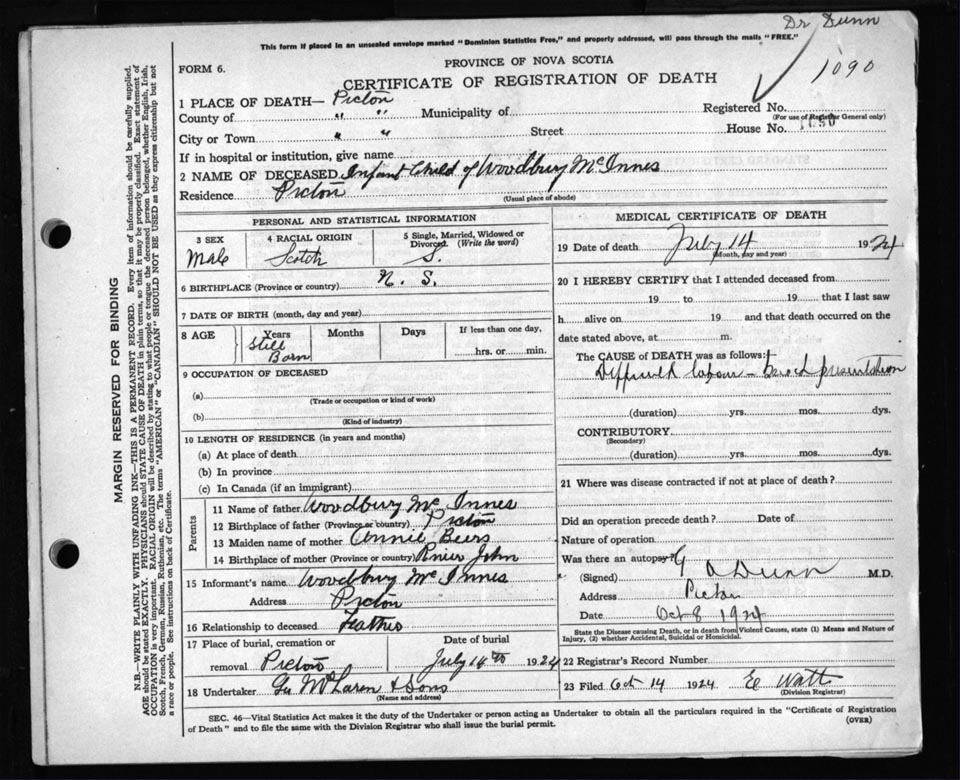 Dr Dunn
This form if placed in an unsealed envelope marked "Dominion Statistics Free," and properly addressed, will pass through the mails "FREE."
PROVINCE OF NOVA SCOTIA
FORM 6.
CERTIFICATE OF REGISTRATION OF DEATH
1090
1 PLACE OF DEATH— Pictou
County of " " Municipality of Registered No.
(For use of Registrar General only)
City or Town " " Street House No. 1090
If in hospital or institution, give name
2 NAME OF DECEASED Infant Child of Woodbury McInnes
Residence Pictou
(Usual place of abode)
PERSONAL AND STATISTICAL INFORMATION
3 SEX 4 RACIAL ORIGIN 5 Single, Married, Widowed or Divorced. (Write the word)
Male Scotch S.
6 BIRTHPLACE (Province or country) N. S.
7 DATE OF BIRTH (month, day and year)
8 AGE Years Months Days If less than one day,
Still Born hrs. or min.
9 OCCUPATION OF DECEASED
(a)
(Trade or occupation or kind of work)
(b)
(Kind of industry)
10 LENGTH OF RESIDENCE (in years and months)
(a) At place of death
(b) In province
(c) In Canada (if an immigrant)
Parents
11 Name of father Woodbury McInnes
12 Birthplace of father (Province or country) Pictou
13 Maiden name of mother Annie Beers
14 Birthplace of mother (Province or country) River John
15 Informant's name Woodbury McInnes
Address Pictou
16 Relationship to deceased Father
17 Place of burial, cremation or Date of burial
removal Pictou July 14th 1924
18 Undertaker McLaren & Sons
(Name and address)
MEDICAL CERTIFICATE OF DEATH
19 Date of death July 14 1924
(Month, day and year)
20 I HEREBY CERTIFY that I attended deceased from
19 to 19 that I last saw
h alive on 19 and that death occurred on the
date stated above, at m.
The CAUSE OF DEATH was as follows:
Difficult labour - Breech presentation
(duration) yrs. mos. dys.
CONTRIBUTORY
(Secondary)
(duration) yrs. mos. dys.
21 Where was disease contracted if not at place of death?
Did an operation precede death? Date of
Nature of operation
Was there an autopsy?
(Signed) G A Dunn M.D.
Address Pictou
Date Oct 8 1924
State the Disease causing Death, or in death from Violent Causes, state (1) Means and Nature of Injury, (2) whether Accidental, Suicidal or Homicidal.
22 Registrar's Record Number
23 Filed Oct 14 1924 Watt
(Division Registrar)
SEC. 46—Vital Statistics Act makes it the duty of the Undertaker or person acting as Undertaker to obtain all the particulars required in the "Certificate of Registration
of Death" and to file the same with the Division Registrar who shall issue the burial permit. (OVER)
MARGIN RESERVED FOR BINDING
N.B.—WRITE PLAINLY WITH UNFADING INK—THIS IS A PERMANENT RECORD. Every item of information should be carefully supplied.
AGE should be stated EXACTLY. PHYSICIANS should STATE CAUSE OF DEATH in plain terms, so that it may be properly classified. Exact statement of
OCCUPATION is very important. RACIAL ORIGIN will be described by stating to what people or tongue the deceased person belonged, whether English, Irish,
Scotch, French, German, Russian, Ruthenian, etc. The terms "AMERICAN" or "CANADIAN" SHOULD NOT BE USED as they express citizenship but not
a race or people. See instructions on back of Certificate.